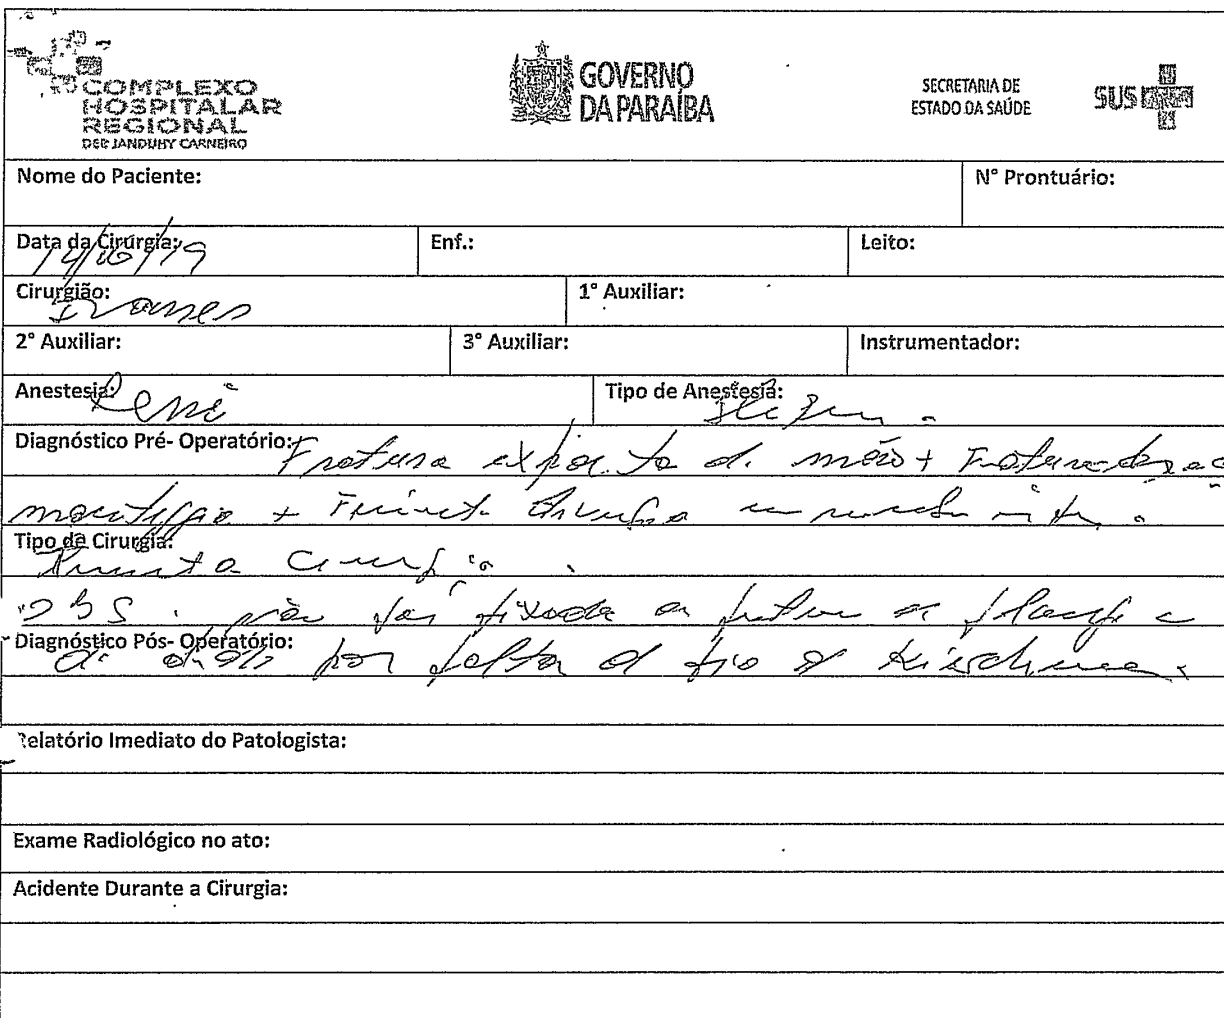 COMPLEXO
HOSPITALAR
REGIONAL
DEP. JANDUHY CARNEIRO
GOVERNO
DA PARAÍBA
SECRETARIA DE
ESTADO DA SAÚDE
SUS
Nome do Paciente:
N° Prontuário:
Data da Cirurgia: 14/10/19
Enf.:
Leito:
Cirurgião:
1° Auxiliar:
2° Auxiliar:
3° Auxiliar:
Instrumentador:
Anestesia: Renê
Tipo de Anestesia:
Diagnóstico Pré- Operatório: Fratura exposta de mão + Fratura
+
Tipo de Cirurgia:
OBS: não foi fixada a fratura de falange
Diagnóstico Pós- Operatório:
do dedo por falta de fio de Kirschner.
Relatório Imediato do Patologista:
Exame Radiológico no ato:
Acidente Durante a Cirurgia: